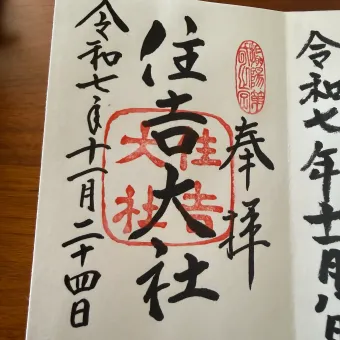 令和七年十一月八日
奉拝
住吉大社
住吉
大社
令和七年十一月二十四日